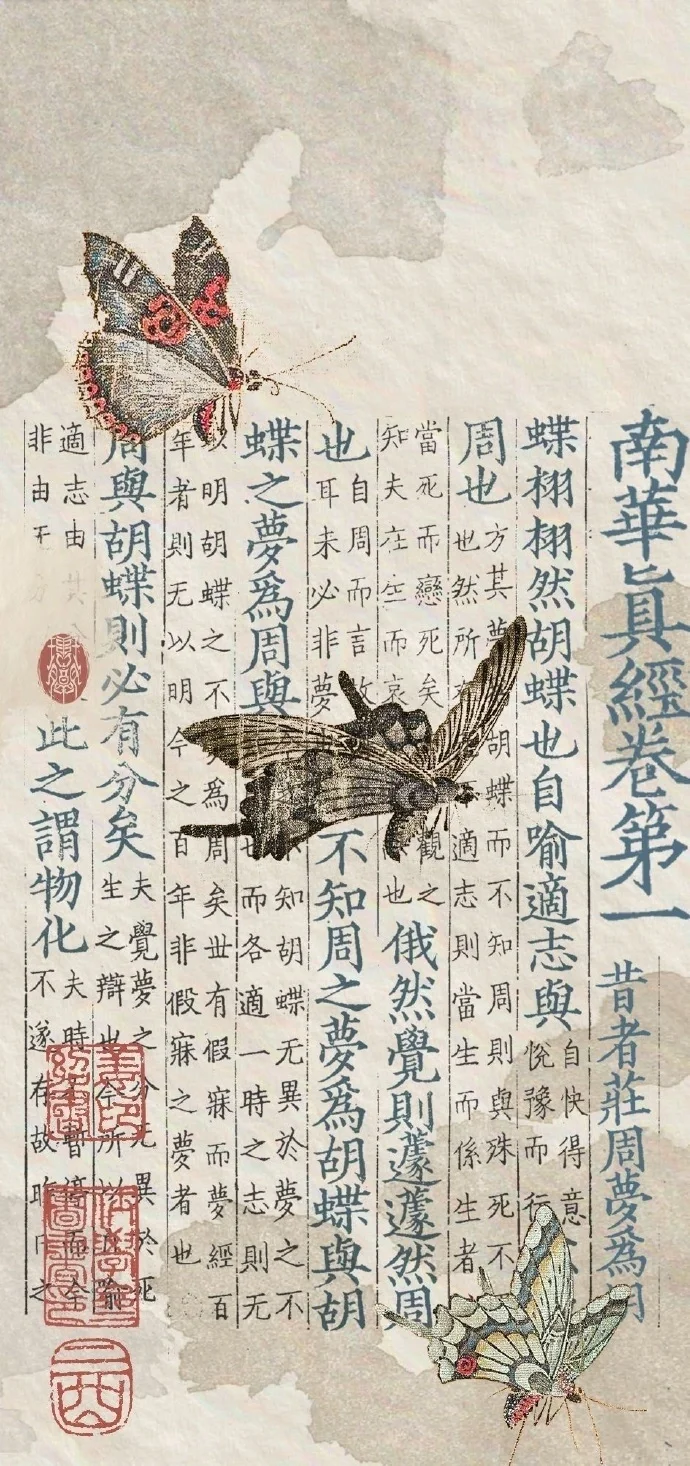 南華眞經卷第一 昔者莊周夢爲胡
蝶栩栩然胡蝶也自喻適志與
自快得意
悅豫而行
周也
方其夢胡蝶而不知周則與殊死不
也然所適志則當生而係生者
當死而戀死矣觀之
知夫在生而哀也
俄然覺則蘧蘧然周
也
自周而言故
耳未必非夢
不知周之夢爲胡蝶與胡
蝶之夢爲周與
知胡蝶无異於夢之不
也而各適一時之志則无
以明胡蝶之不爲周矣世有假寐而夢經百
年者則无以明今之百年非假寐之夢者也
周與胡蝶則必有分矣
夫覺夢之分无異於死
生之辯也今所以喻
適志由其
非由无
此之謂物化
夫時不暫停而今
不遂存故昨日之
二酉